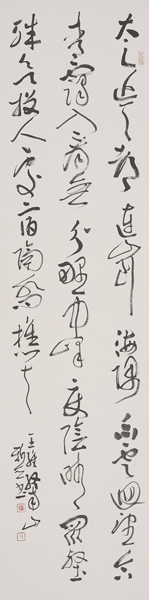 太乙近天都連山到海隅白雲迴望合
青靄入看無分野中峰變陰晴眾壑
殊欲投人處宿隔水問樵夫
王維終南山